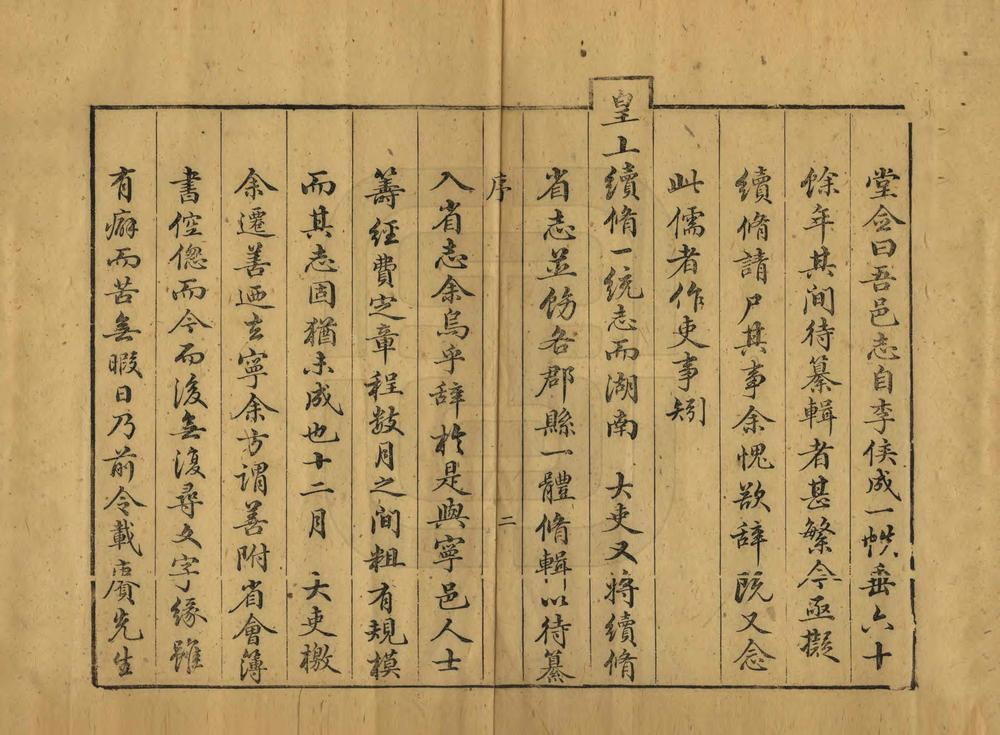 堂僉曰吾邑志自李侯成一帙垂六十
餘年其間待纂輯者甚繁今亟擬
續脩請尸其事余愧欲辭既又念
此儒者作吏事矧
皇上續脩一統志而湖南　大吏又將續脩
省志並飭各郡縣一體脩輯以待纂
序　二
入省志余烏乎辭於是與寧邑人士
籌經費定章程數月之間粗有規模
而其志固猶未成也十二月　大吏檄
余遷善迺去寧余方謂善附省會簿
書倥傯而今而後無復尋文字緣雖
有癖而苦無暇日乃前令載賡先生